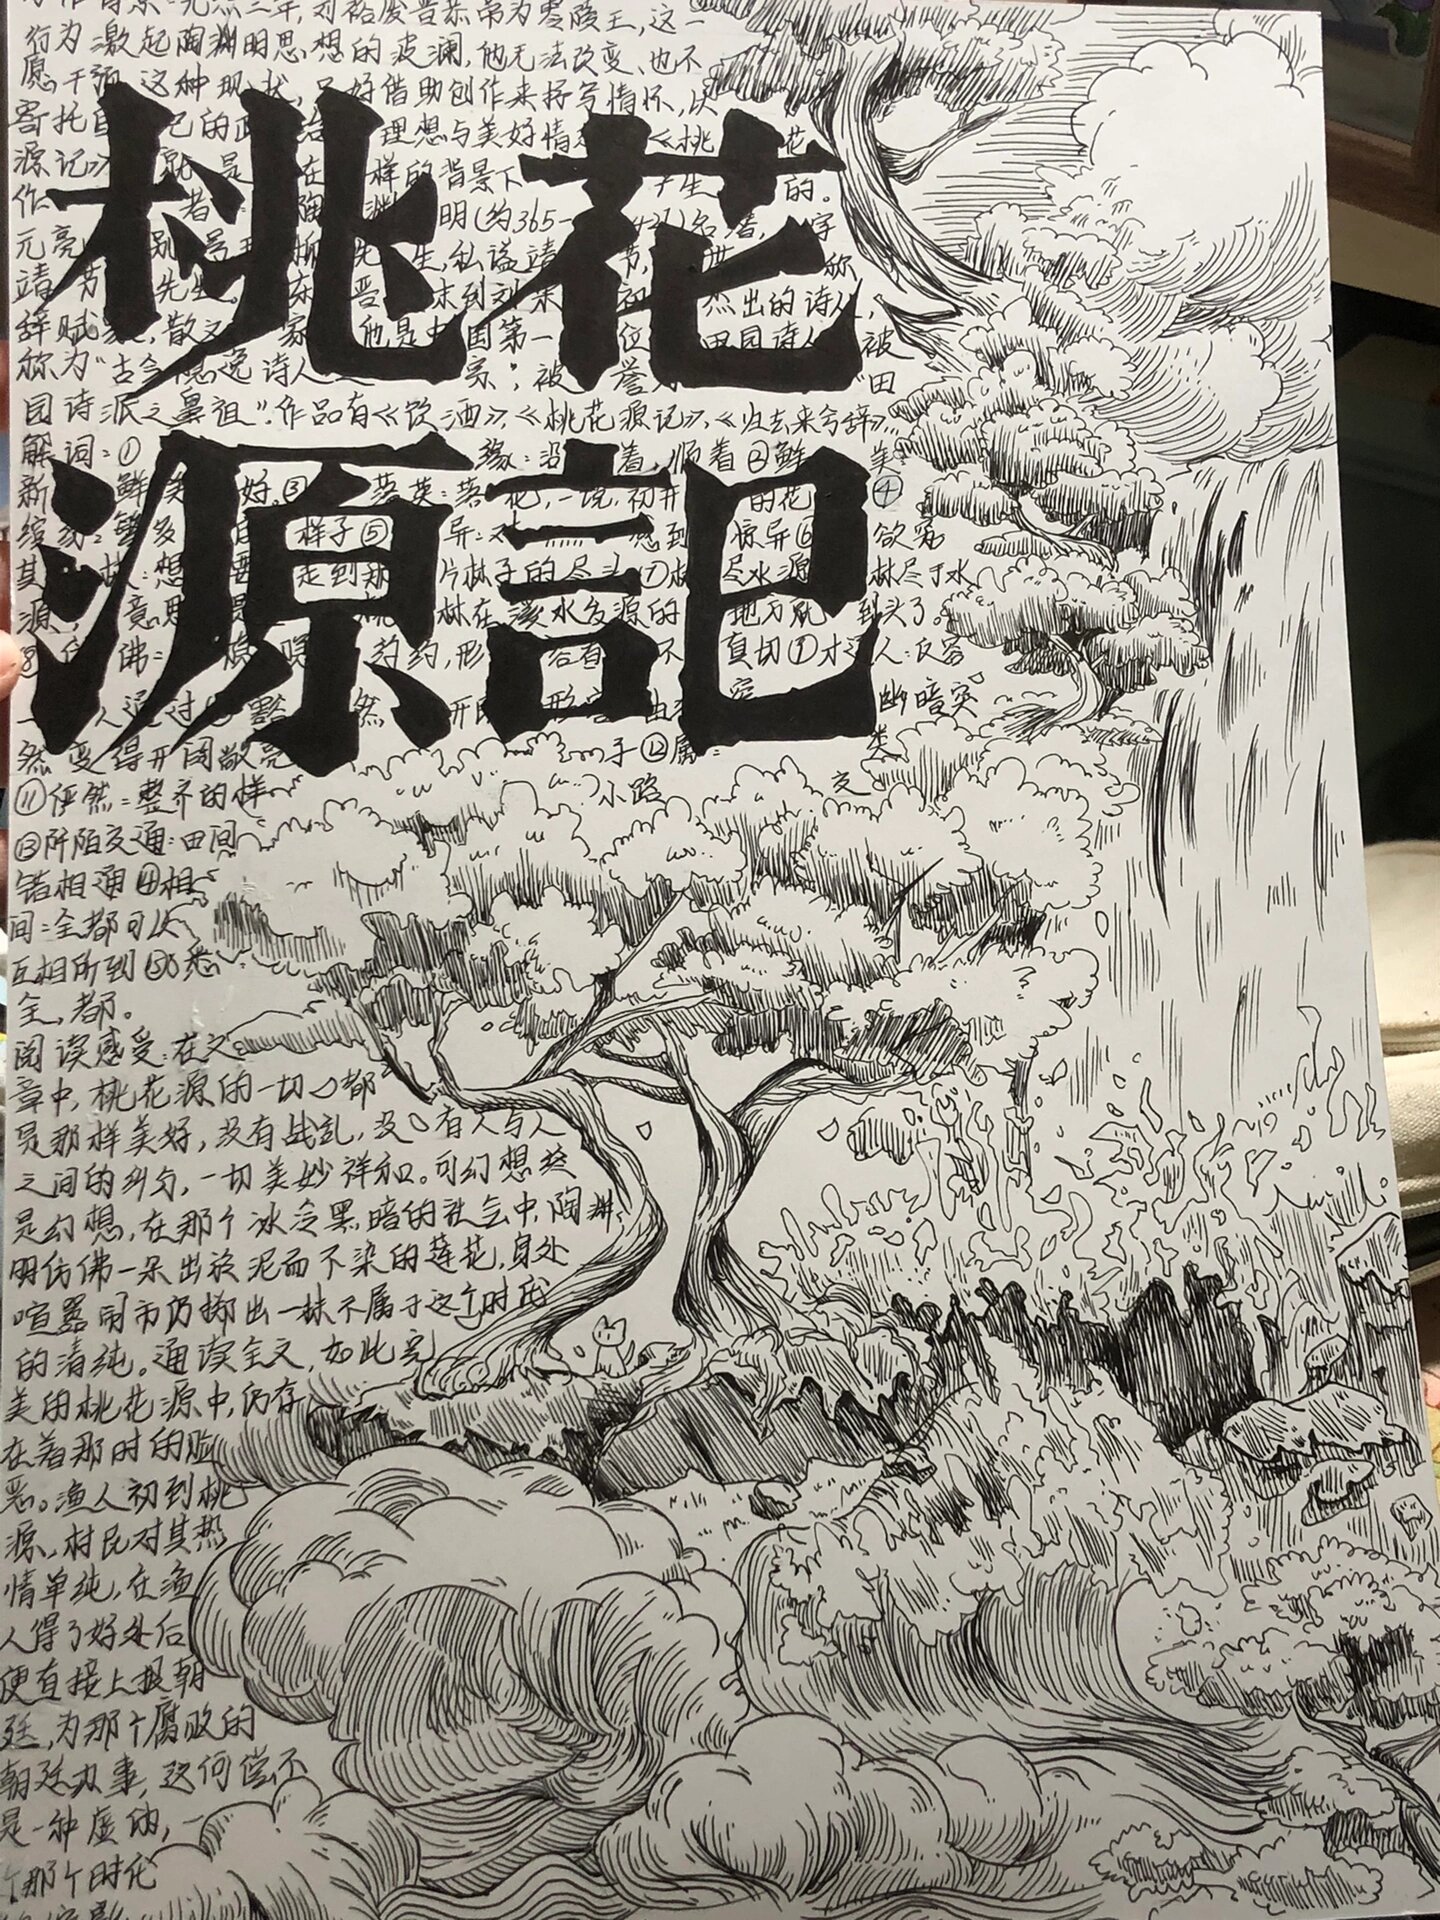 桃花
源記
元熙二年,刘裕废晋恭帝为零陵王,这一
行为激起陶渊明思想的波澜,他无法改变、也不
愿干预这种现状,只好借助创作来抒写情怀,以
寄托自己的政治理想与美好情 《桃花
源记》就是在 样的背景下产生的。
作者:陶渊明(约365- 427)名潜,字
元亮,别号五柳先生,私谥靖节,世称
靖节先生。东晋末到刘宋初杰出的诗人,
辞赋家,散文家,他是中国第一位田园诗人,被
称为“古今隐逸诗人之宗”,被誉为“田
园诗派之鼻祖”.作品有《饮酒》,《桃花源记》,《归去来兮辞》
解词:① 缘:沿着,顺着②鲜美
新鲜美好③落英:落花,一说,初开的花④
缤纷:繁多 样子⑤异:对 感到惊异⑥欲穷
其林:想要走到那片林子的尽头⑦林尽水源:林尽于水
源,意思是桃林在溪水发源的地方就到头了。
佛: 隐隐约约,形容看不真切⑨才通人:仅容
一人通过⑩豁然开朗:形容由 幽暗突
然变得开阔敞亮
⑪俨然:整齐的样子⑫属:类
⑬阡陌交通:田间小路交
错相通⑭相
间:全都可以
互相听到⑮悉:
全,都。
阅读感受:在文
章中,桃花源的一切都
是那样美好,没有战乱,没有人与人
之间的纠 ,一切美妙祥和。可幻想终
是幻想,在那个冰冷黑暗的社会中,陶渊
明仿佛一朵出淤泥而不染的莲花,身处
喧嚣闹市仍掷出一抹不属于这个时代
的清纯。通读全文,如此完
美的桃花源中,仍存
在着那时的险
恶。渔人初到桃
源,村民对其热
情单纯,在渔
人得了好处后
便直接上报朝
廷,为那个腐败的
朝廷办事,这何尝不
是一种虚伪,一
个那个时代